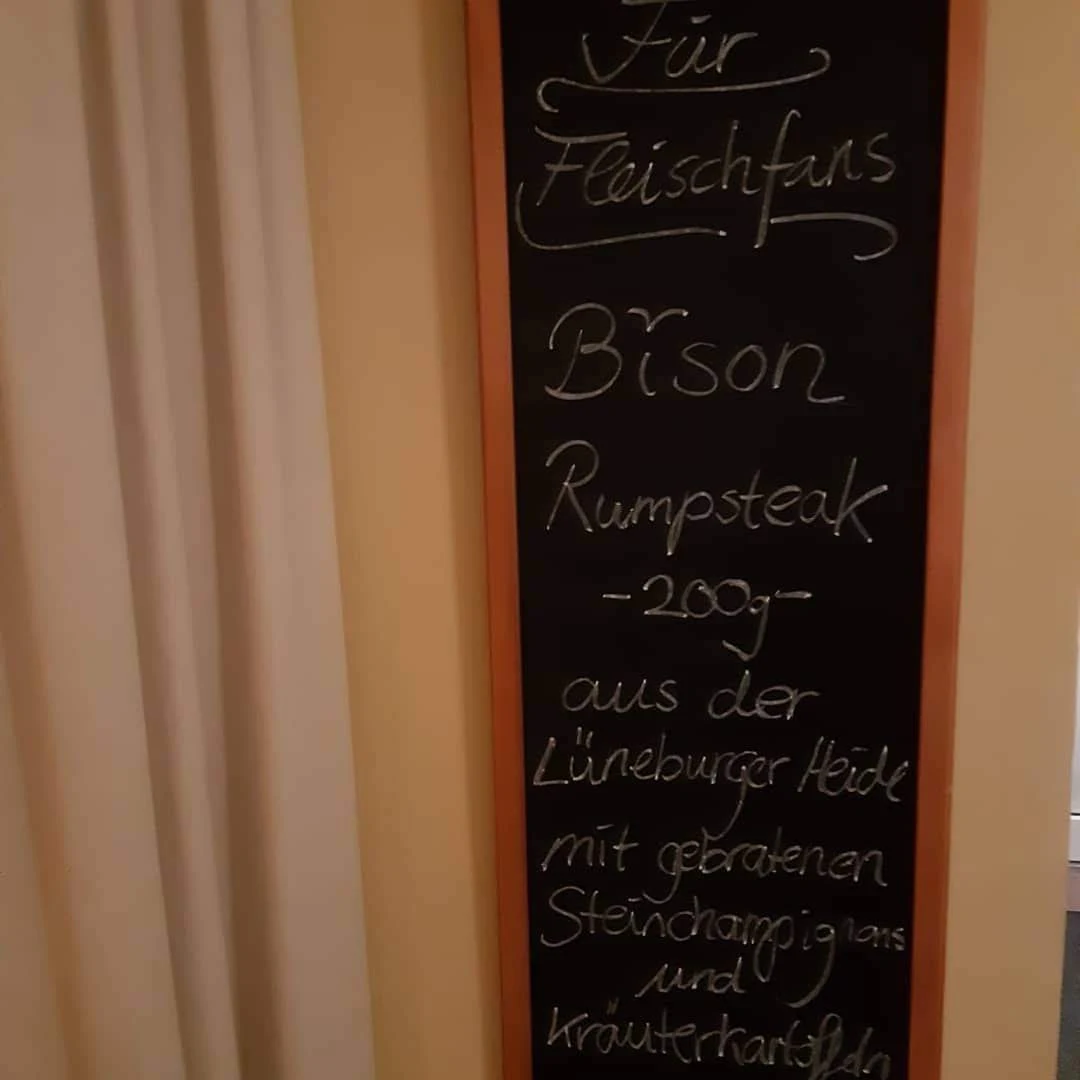 Für
Fleischfans
Bison
Rumpsteak
-200g-
aus der
Lüneburger Heide
mit gebratenen
Steinchampignons
und
Kräuterkartoffeln